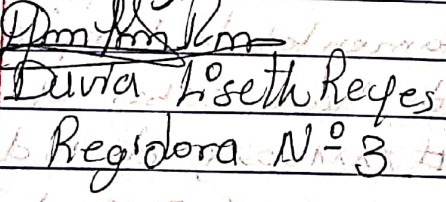 Duvia Liseth Reyes
Regidora Nº 3